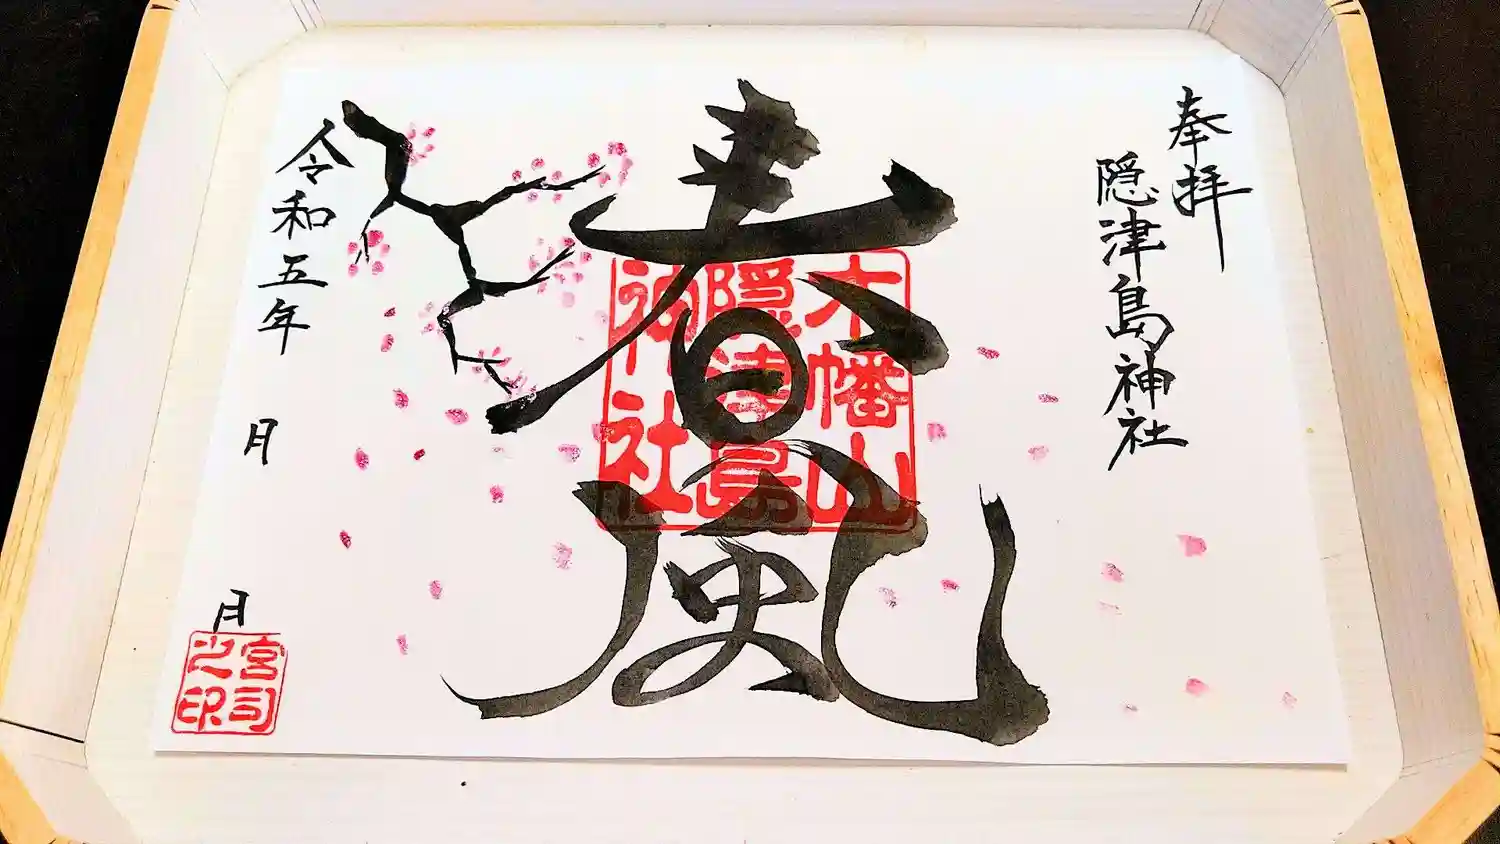 奉拝
隠津島神社
春風
木幡山
隠津島
神社
令和五年 月 日
宮司
之印